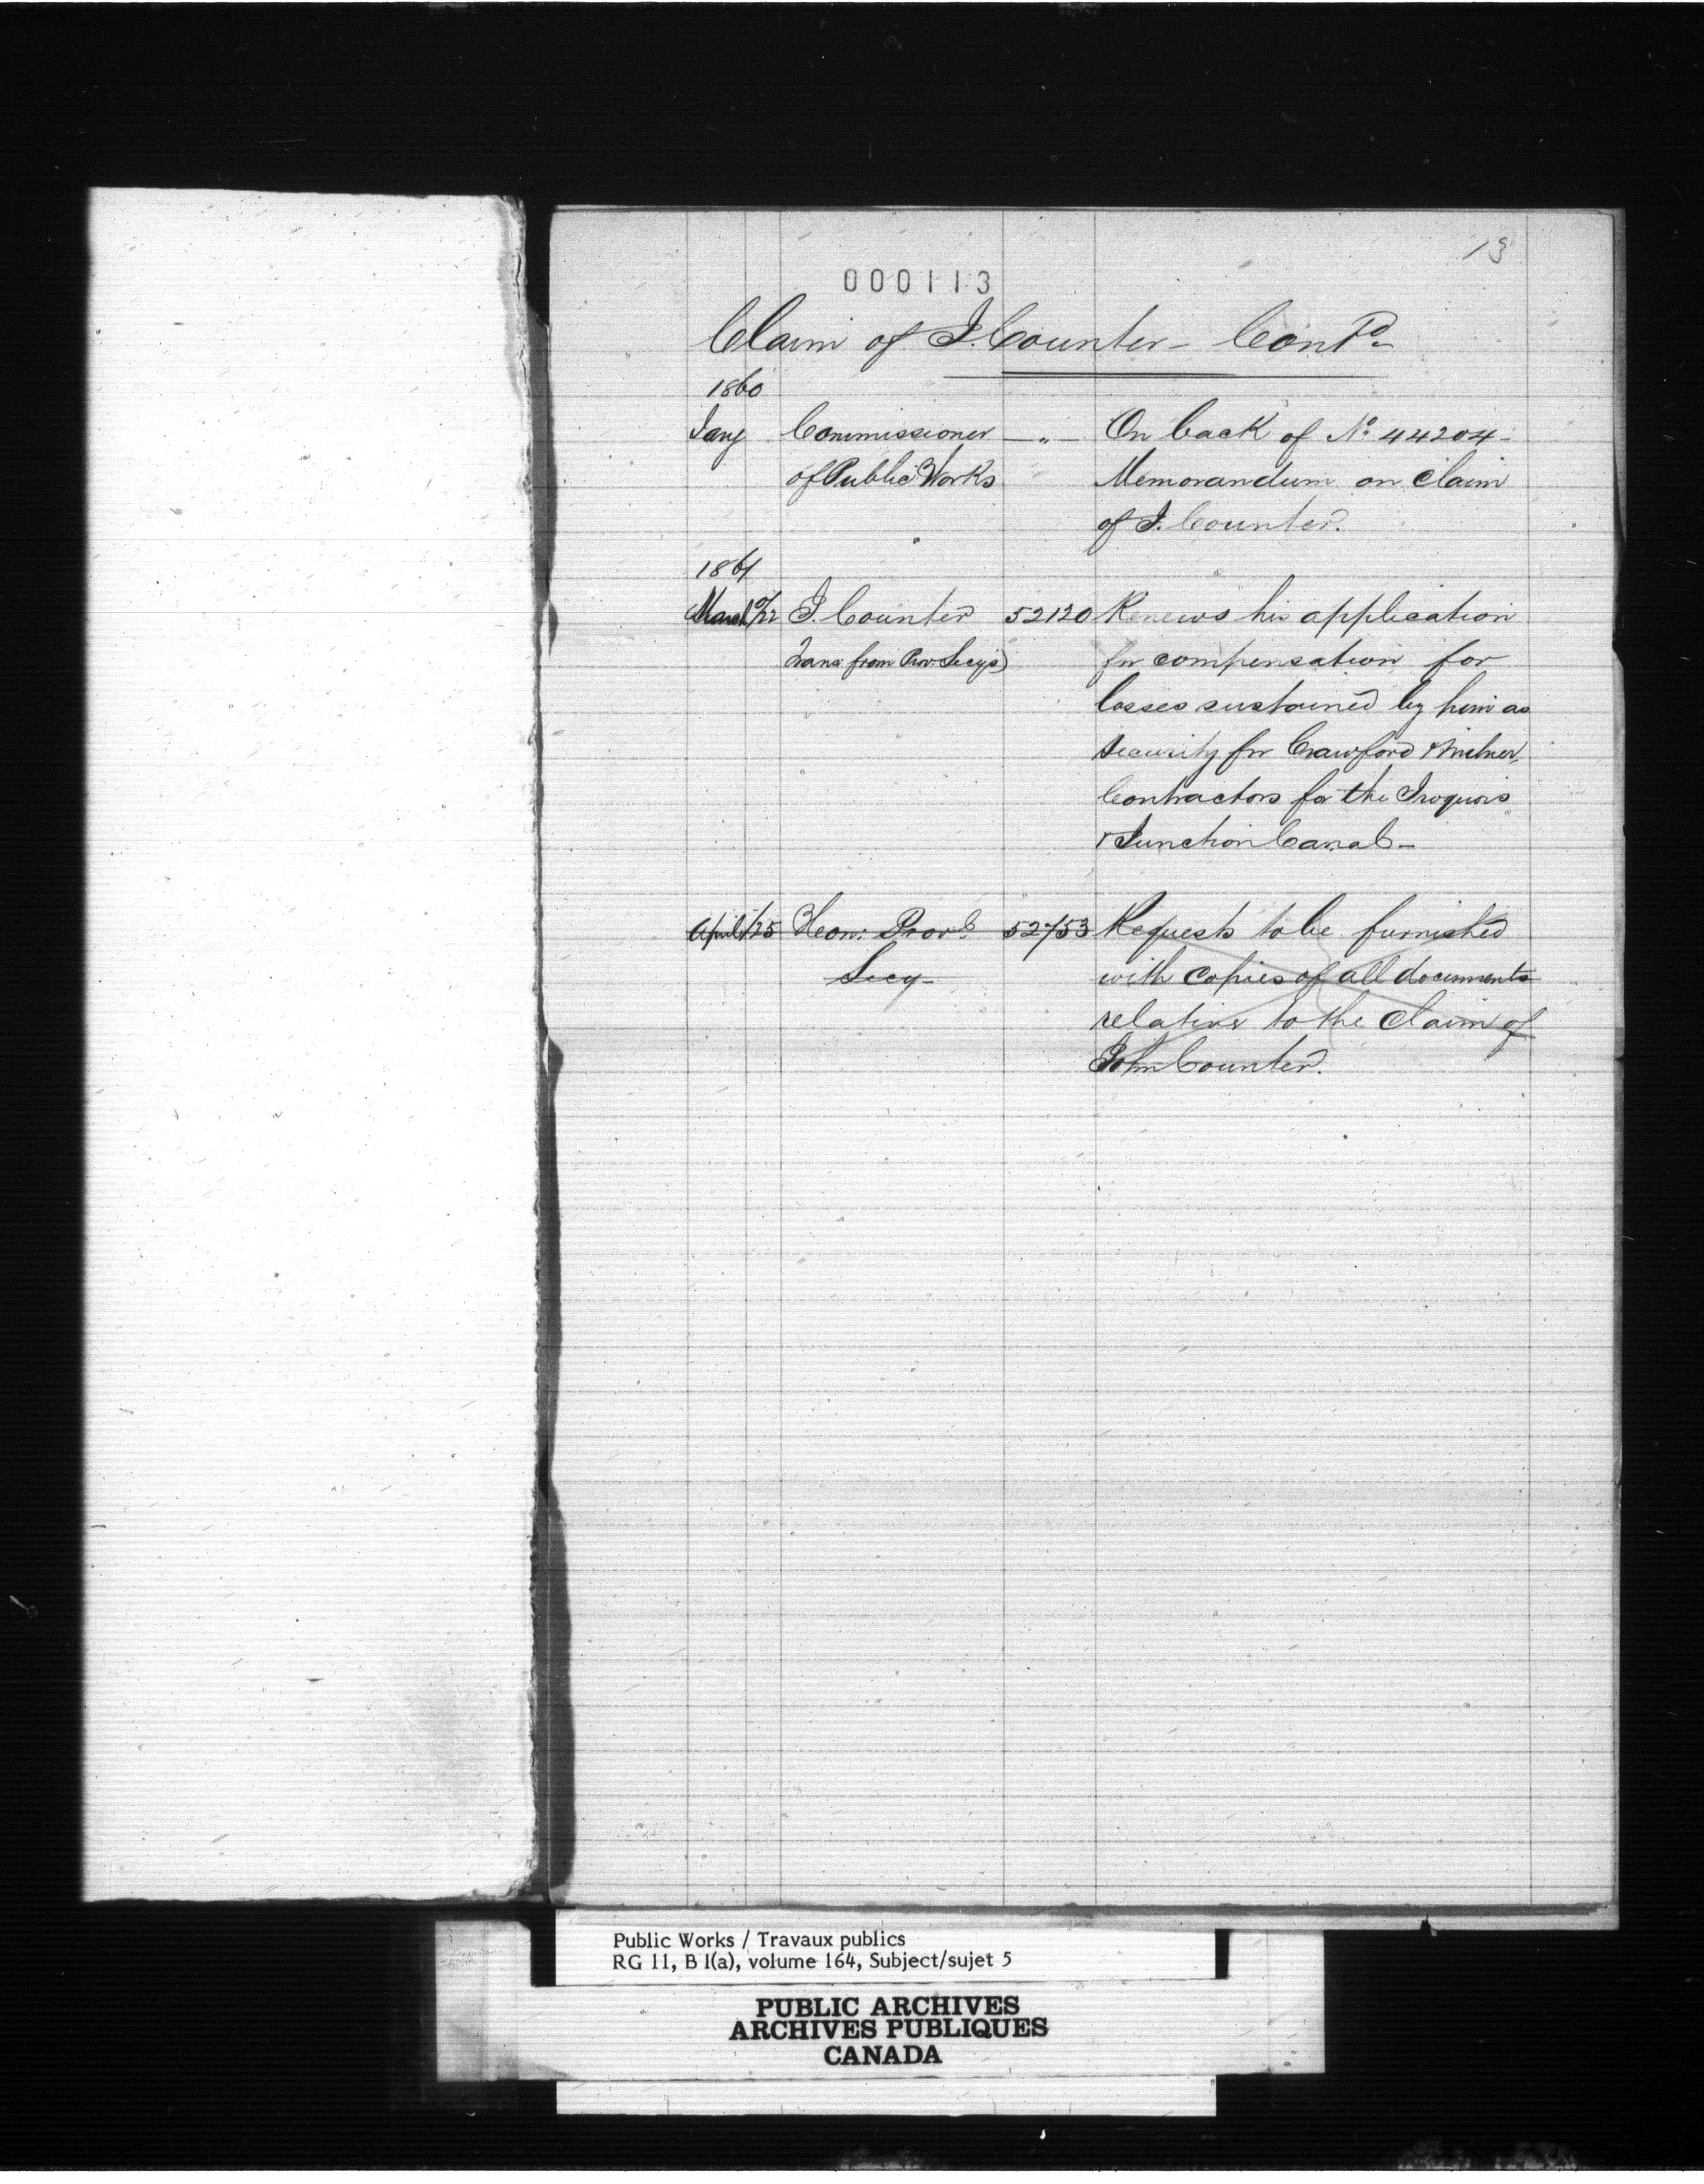 13
000113
Claim of J. Counter - Cont'd -
1860
Jany Commissioner — " — On back of No. 44204 -
of Public Works Memorandum on claim
of J. Counter.
1861
March 22 J. Counter 52120 Renews his application
from Prov. Secy's) for compensation for
losses sustained by him as
security for Crawford &
Contractors for the Iroquois
& Junction Canal -
April 25 Hon: Provl. 52753 Requests to be furnished
Secy - with copies of all documents
relative to the claim of
John Counter.
Public Works / Travaux publics
RG 11, B 1(a), volume 164, Subject/sujet 5
PUBLIC ARCHIVES
ARCHIVES PUBLIQUES
CANADA